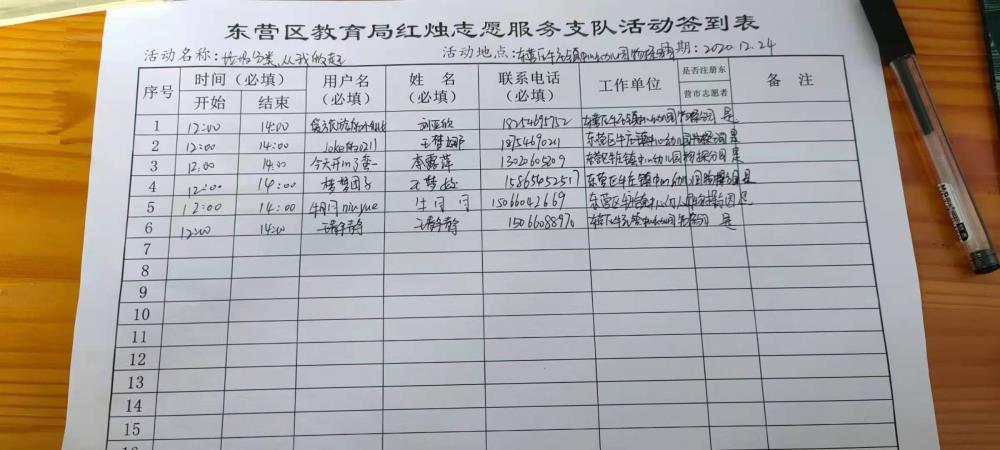 东营区教育局红烛志愿服务支队活动签到表
活动名称：垃圾分类，从我做起 活动地点：东营区牛庄镇中心幼儿园 日期：2020.12.24
序号 时间（必填） 用户名（必填） 姓名（必填） 联系电话（必填） 工作单位 是否注册东营市志愿者 备注
开始 结束
1 12:00 14:00 刘亚欣 18254695752 东营区牛庄镇中心幼儿园 是
2 12:00 14:00 王梦娜 东营区牛庄镇中心幼儿园 是
3 12:00 14:00 李露萍 东营区牛庄镇中心幼儿园 是
4 12:00 14:00 15865452517 东营区牛庄镇中心幼儿园 是
5 12:00 14:00 牛月月 15066042669 东营区牛庄镇中心幼儿园 是
6 12:00 14:00 王静静 王静静 15066088970 东营区牛庄镇中心幼儿园 是
7
8
9
10
11
12
13
14
15